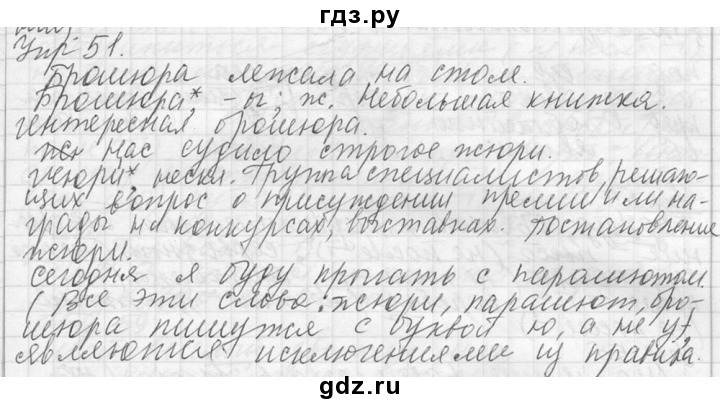 гдз.ру
Упр 51.
Брошюра лежала на столе.
Брошюра*, -ы; ж. Небольшая книжка.
Интересная брошюра.
Нас судило строгое жюри.
Жюри*, нескл. Группа специалистов, решаю-
щих вопрос о присуждении премии или на-
грады на конкурсах, выставках. Постановление
жюри.
Сегодня я буду прыгать с парашютом.
(Все эти слова: жюри, парашют, бро-
шюра пишутся с буквой ю, а не у),
являются исключениями из правила.
gdz.ru